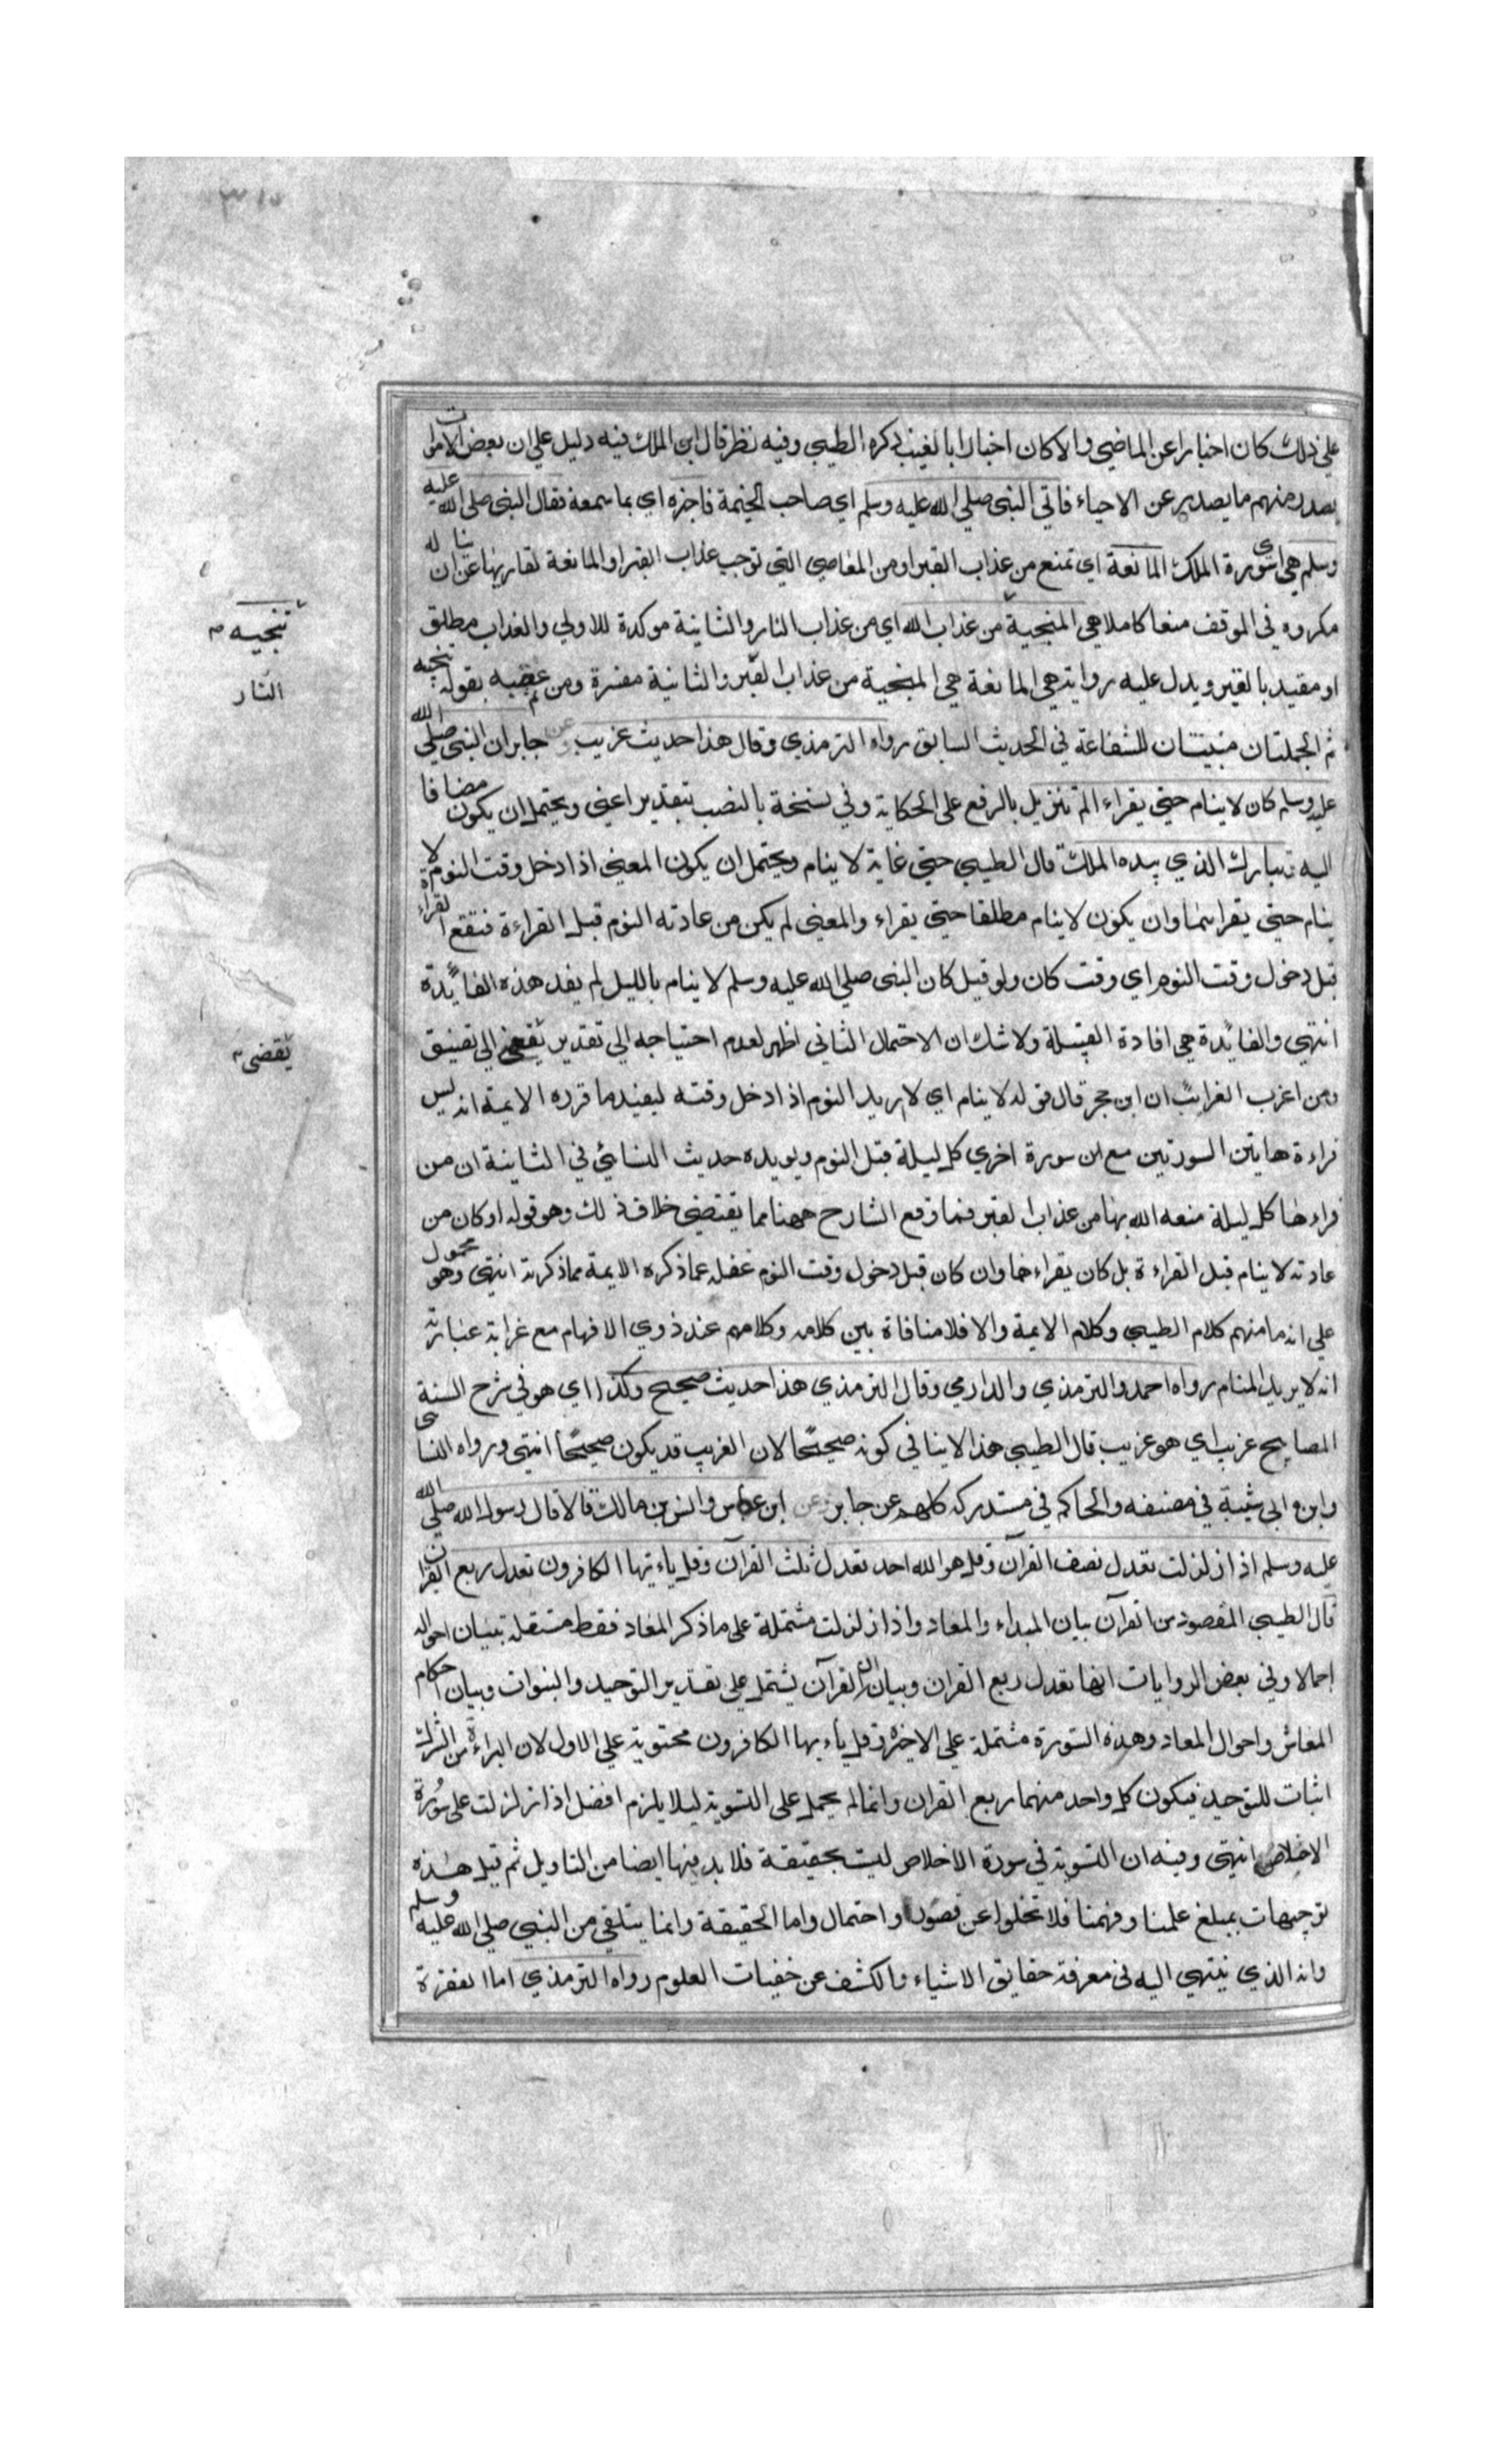 ٣١٥
على ذلك كان اخبارا عن الماضي والا كان اخبارا بالغيب ذكره الطيبي وفيه نظر قال ابن الملك فيه دليل علي ان بعض الاموات
يصدر منهم ما يصدر عن الاحياء فاتي النبي صلي الله عليه وسلم اي صاحب الخيمة فاخبره اي بما سمعه فقال النبي صلي الله عليه
وسلم هي اي سورة الملك المانعة اي تمنع من عذاب القبر او من المعاصي التي توجب عذاب القبر او المانعة لقاريها عن ان يناله
مكروه في الموقف منعا كاملا هي المنجية من عذاب الله اي من عذاب النار والثانية موكدة للاولي والعذاب مطلق
او مقيد بالقبر ويدل عليه رواية هي المانعة هي المنجية من عذاب القبر والثانية مفسرة ومن ثم عقبه بقوله تنجيه
ثم الجملتان مبينتان للشفاعة في الحديث السابق رواه الترمذي وقال هذا حديث غريب وعن جابر ان النبي صلي الله
عليه وسلم كان لا ينام حتي يقراء الم تنزيل بالرفع على الحكاية وفي نسخة بالنصب بتقدير اعني ويحتمل ان يكون مضافا
اليه وتبارك الذي بيده الملك قال الطيبي حتي غاية لا ينام ويحتمل ان يكون المعني اذا دخل وقت النوم لا
ينام حتي يقراهما وان يكون لا ينام مطلقا حتي يقراء والمعني لم يكن من عادته النوم قبل القراءة فتقع القراءة
قبل دخول وقت النوم اي وقت كان ولو قيل كان النبي صلي الله عليه وسلم لا ينام بالليل لم يفد هذه الفائدة
انتهي والفائدة هي افادة القبلية ولا شك ان الاحتمال الثاني اظهر لعدم احتياجه الي تقدير يقضي الي تضييق
ومن اغرب الغرائب ان ابن حجر قال قوله لا ينام اي لا يريد النوم اذا دخل وقته ليفيد ما قرره الايمة انه ليس
قراءة هاتين السورتين مع ان سورة اخري كل ليلة قبل النوم ويويده حديث النسائي في الثانية ان من
قراءها كل ليلة منعه الله بها من عذاب القبر فما وقع الشارح ههنا مما يقتضي خلاف ذلك وهو قوله او كان من
عادته لا ينام قبل القراءة بل كان يقراءها وان كان قبل دخول وقت النوم غفلة عما ذكره الايمة مما ذكرته انتهي وهو محمول
علي انه ما منهم كلام الطيبي وكلام الايمة والا فلا منافاة بين كلامه وكلامهم عند ذوي الافهام مع غرابة عبارته
انه لا يريد المنام رواه احمد والترمذي والدارمي وقال الترمذي هذا حديث صحيح وكذا اي هو في شرح السنة
المصابيح غريب اي هو غريب قال الطيبي هذا لا ينافي كونه صحيحا لان الغريب قد يكون صحيحا انتهي ورواه النساي
وابن ابي شيبة في مصنفه والحاكم في مستدركه كلهم عن جابر وعن ابن عباس وانس بن مالك قالا قال رسول الله صلي الله
عليه وسلم اذا زلزلت تعدل نصف القرآن وقل هو الله احد تعدل ثلث القرآن وقل ياءيها الكافرون تعدل ربع القران
قال الطيبي المقصود من القرآن بيان المبداء والمعاد واذا زلزلت مشتملة على ما ذكر المعاد فقط مستقلة ببيان احواله
اجمالا وفي بعض الروايات انها تعدل ربع القران وبيان ان القرآن يشتمل علي تقدير التوحيد والنبوات وبيان احكام
المعاش واحوال المعاد وهذه السورة مشتملة علي الاخيرة وقل ياءيها الكافرون محتوية علي الاول لان البراءة من الشرك
اثبات للتوحيد فيكون كل واحد منهما ربع القران وانما لم يحمل على التسوية ليلا يلزم افضل اذا زلزلت على سورة
الاخلاص انتهي وفيه ان التسوية في سورة الاخلاص ليست بحقيقة فلا بد فيها ايضا من التاويل ثم قيل هذه
توجيهات بمبلغ علمنا وفهمنا فلا تخلوا عن قصور او احتمال واما الحقيقة وانما يتلقي من النبي صلي الله عليه وسلم
وانه الذي ينتهي اليه في معرفة حقايق الاشياء والكشف عن خفيات العلوم رواه الترمذي اما الفقرة
تنجيه م
النار
يقضي م